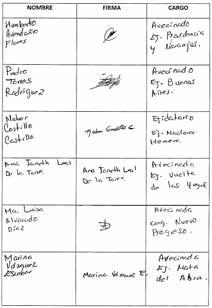 NOMBRE FIRMA CARGO
Humberto
Mendoza
Flores
Avecinado
Ej. Prudencia
y Naranjos.
Pedro
Torres
Rodriguez
Avecinado
Ej. Buenos
Aires.
Nahor
Castillo
Castillo
Nahor Castillo C.
Ejidatario
Ej. Nacional
Ana Janeth Leal
De la Torre
Ana Janeth Leal
De la Torre
Avecinada
Ej. Vuelta
de las Yeguas
Ma. Luisa
Alvarado
Díaz
Avecinada
Cong. Nuevo
Progreso.
Marina
Vázquez
Escobar
Marina Vázquez E.
Avecinada
Ej. Nata
del Abra.